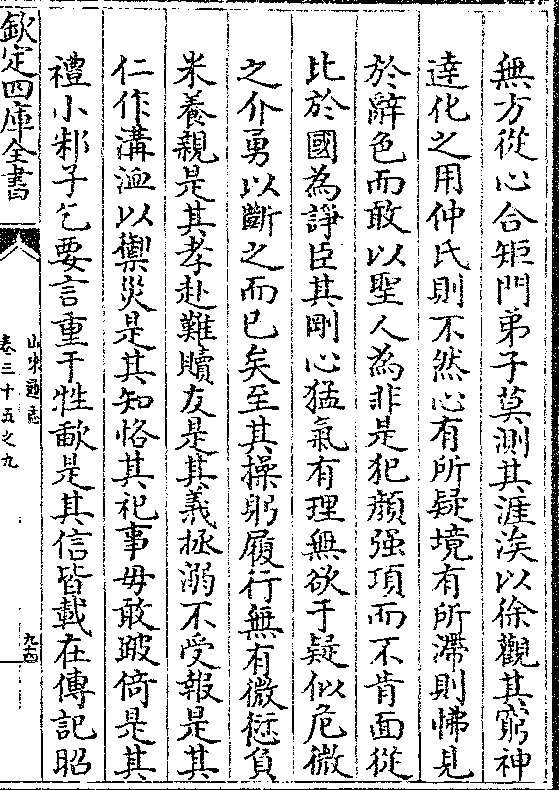 無方從心合矩門弟子莫測其涯涘以徐觀其窮神
達化之用仲氏則不然心有所疑境有所滯則怫見
於辭色而敢以聖人為非是犯顔强項而不肯面從
比於國為諍臣其剛心猛氣有理無欲于疑似危微
之介勇以斷之而已矣至其操躬履行無有微愆負
米養親是其孝赴難贖友是其義拯溺不受報是其
仁作溝洫以禦災是其知恪其祀事毋敢跛倚是其
禮小邾子乞要言重于牲歃是其信皆載在傳記昭
欽定四庫全書
山東通志
卷三十五之九
九十四